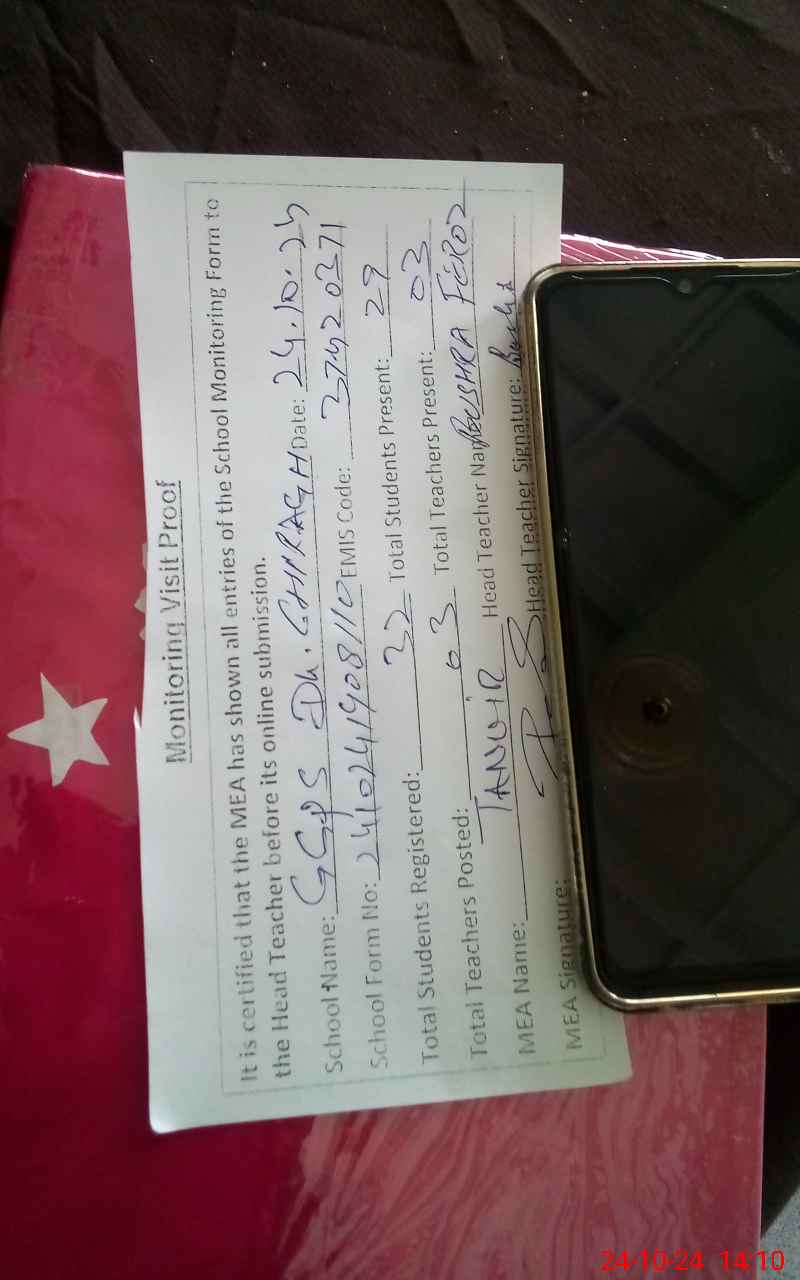 Monitoring Visit Proof
It is certified that the MEA has shown all entries of the School Monitoring Form to
the Head Teacher before its online submission.
School Name: GGPS Dh. CHHRAGH Date: 24.10.24
School Form No: 2410241908110 EMIS Code: 37420371
Total Students Registered: 32 Total Students Present: 29
Total Teachers Posted: 03 Total Teachers Present: 03
MEA Name: TANVIR Head Teacher Nam BUSHRA FEROZ
MEA Signature: Head Teacher Signature: Bushra
24-10-24 14:10